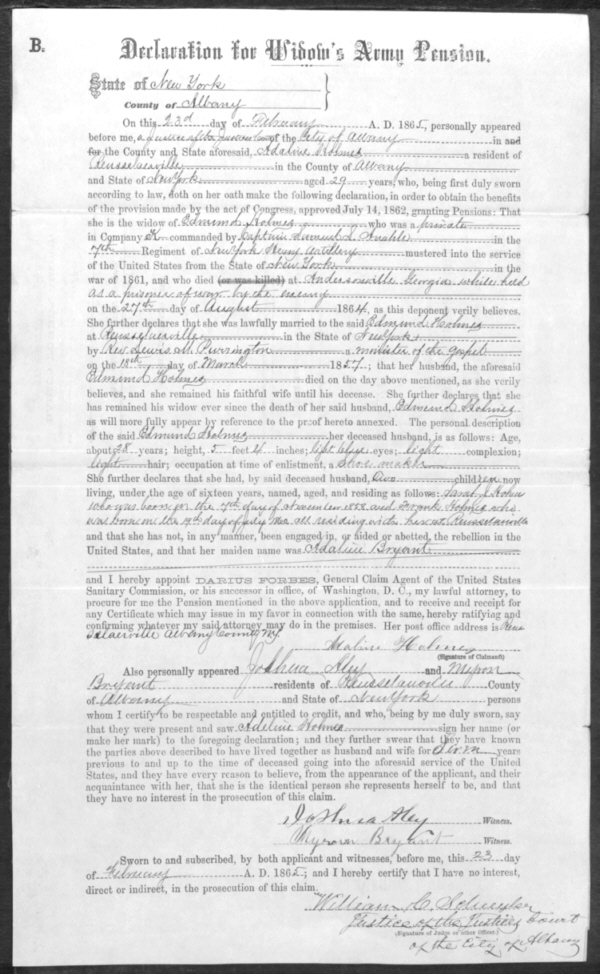 B.
Declaration for Widow's Army Pension.
State of New York
County of Albany
On this 23d day of February A. D. 1865, personally appeared
before me, a Justice of the Justices Court of the City of Albany in and
for the County and State aforesaid, Adaline Holmes a resident of
Rensselaerville in the County of Albany
and State of New York aged 29 years, who, being first duly sworn
according to law, doth on her oath make the following declaration, in order to obtain the benefits
of the provision made by the act of Congress, approved July 14, 1862, granting Pensions: That
she is the widow of Edmund Holmes who was a private
in Company K commanded by Captain Samuel L. in the
7th Regiment of New York Heavy Artillery mustered into the service
of the United States from the State of New York in the
war of 1861, and who died (or was killed) at Andersonville Georgia while held
as a prisoner of war by the enemy
on the 27th day of August 1864, as this deponent verily believes.
She further declares that she was lawfully married to the said Edmund Holmes
at Rensselaerville in the State of New York
by Rev Lewis M. Purrington a minister of the Gospel
on the day of March 1857; that her husband, the aforesaid
Edmund Holmes died on the day above mentioned, as she verily
believes, and she remained his faithful wife until his decease. She further declares that she
has remained his widow ever since the death of her said husband, Edmund Holmes
as will more fully appear by reference to the proof hereto annexed. The personal description
of the said Edmund Holmes her deceased husband, is as follows: Age,
about 28 years; height, 5 feet 4 inches; light blue eyes; light complexion;
light hair; occupation at time of enlistment, a shoe maker
She further declares that she had, by said deceased husband, two children now
living, under the age of sixteen years, named, aged, and residing as follows: Sarah J. Holmes
who was born on the 7th day of November 1858 and Frank Holmes who
was born on the 19th day of July all residing with her at Rensselaerville
and that she has not, in any manner, been engaged in, or aided or abetted, the rebellion in the
United States, and that her maiden name was Adaline Bryant
and I hereby appoint DARIUS FORBES, General Claim Agent of the United States
Sanitary Commission, or his successor in office, of Washington, D. C., my lawful attorney, to
procure for me the Pension mentioned in the above application, and to receive and receipt for
any Certificate which may issue in my favor in connection with the same, hereby ratifying and
confirming whatever my said attorney may do in the premises. Her post office address is Rens
selaerville Albany County NY
Adaline Holmes
(Signature of Claimant)
Also personally appeared Joshua Aley and Myron
Bryant residents of Rensselaerville County
of Albany and State of New York persons
whom I certify to be respectable and entitled to credit, and who, being by me duly sworn, say
that they were present and saw Adeline Holmes sign her name (or
make her mark) to the foregoing declaration; and they further swear that they have known
the parties above described to have lived together as husband and wife for seven years
previous to and up to the time of deceased going into the aforesaid service of the United
States, and they have every reason to believe, from the appearance of the applicant, and their
acquaintance with her, that she is the identical person she represents herself to be, and that
they have no interest in the prosecution of this claim.
Joshua Aley Witness.
Myron Bryant Witness.
Sworn to and subscribed, by both applicant and witnesses, before me, this 23 day
of February A. D. 1865; and I hereby certify that I have no interest,
direct or indirect, in the prosecution of this claim.
William C. Schuyler
Justice of the Justices Court
(Signature of Judge or other Officer.)
of the City of Albany